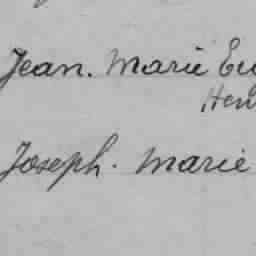 Jean. Marie Eu
Hen
Joseph. Marie